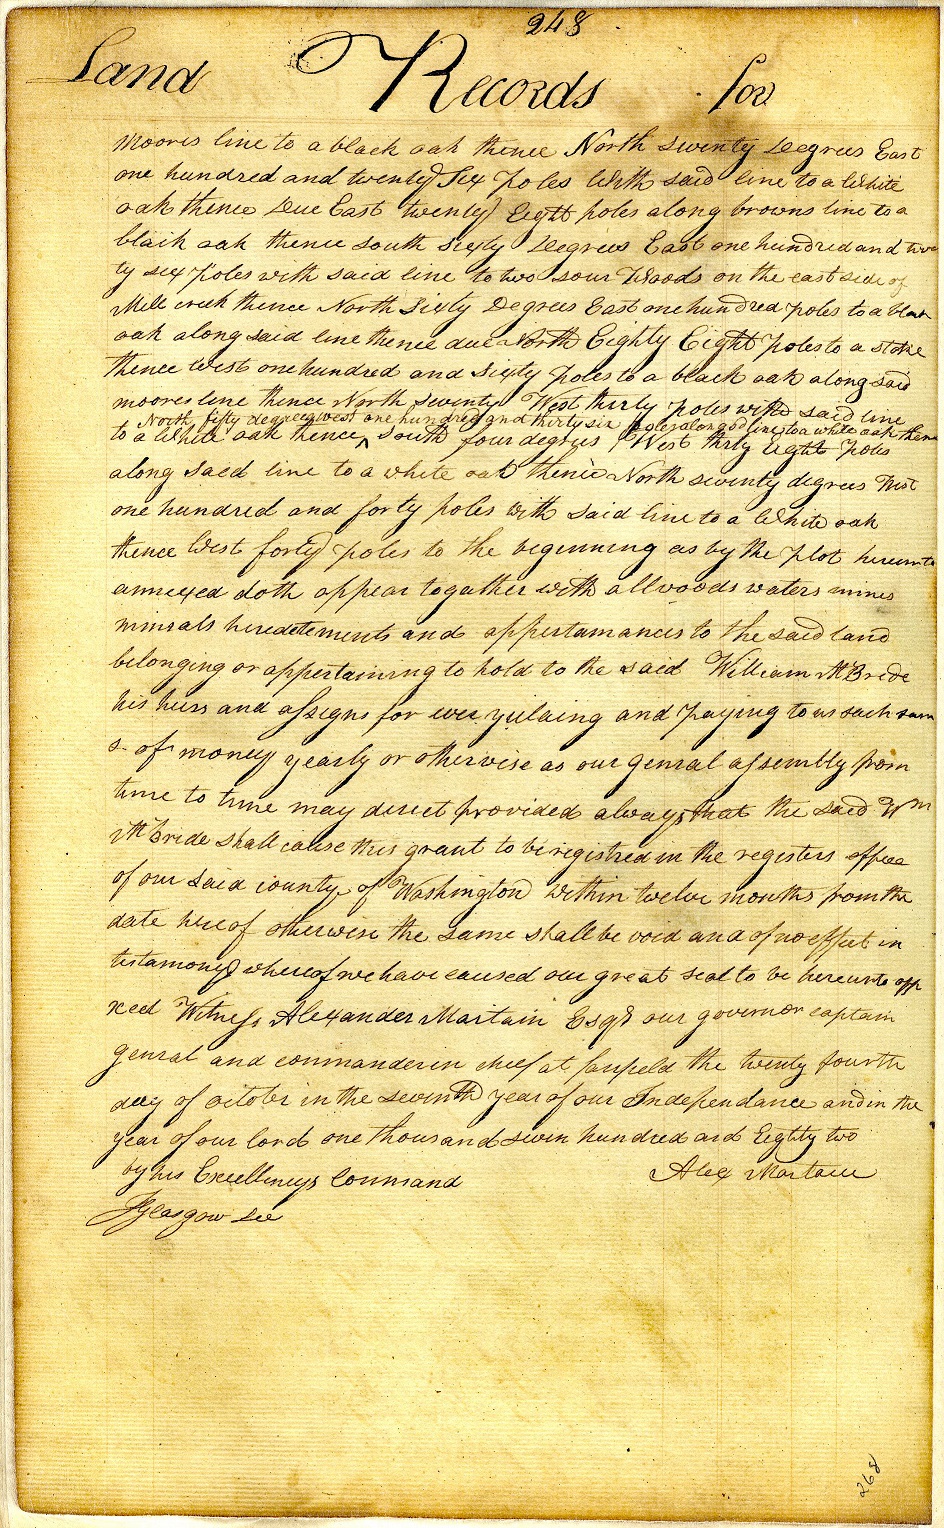 248
Land Records for
Moores line to a black oak thence North seventy Degrees East
one hundred and twenty Six poles With said line to a White
oak thence Due East twenty Eight poles along browns line to a
black oak thence south sixty Degrees East one hundred and twen
ty six poles with said line to two sour Woods on the east side of
Mill creek thence North Sixty Degrees East one hundred poles to a black
oak along said line thence due North Eighty Eight poles to a stake
thence West one hundred and sixty poles to a black oak along said
moores line thence North seventy West thirty poles with said line
North fifty degrees west one hundred and thirty six poles along sd line to a white oak thence
to a White oak thence ^ South four degrees West thirty Eight poles
along saed line to a white oak thence North seventy degrees West
one hundred and forty poles With said line to a White oak
thence West forty poles to the beginning as by the plot hereunto
annexed doth appear togather with all woods waters mines
minirals heredetements and appertamances to the said land
belonging or appertaining to hold to the said William McBride
his heirs and assigns for ever yielding and paying to us such sum
s of money yearly or otherwise as our genral assembly from
time to time may direct provided always that the said Wm
McBride shall cause this grant to be registred in the registers office
of our said county of Washington within twelve months from the
date hereof otherwise the same shall be void and of no effect in
testamony whereof we have caused our great seal to be hereunto aff
ixed Witness Alexander Martain Esqr our governor captain
genral and commander in cheif at fairfeld the twenty fourth
day of october in the seventh year of our Independance and in the
year of our lord one thousand seven hundred and Eighty two
by his Excellencys Command Alex Martain
J Glasgow Sec
268